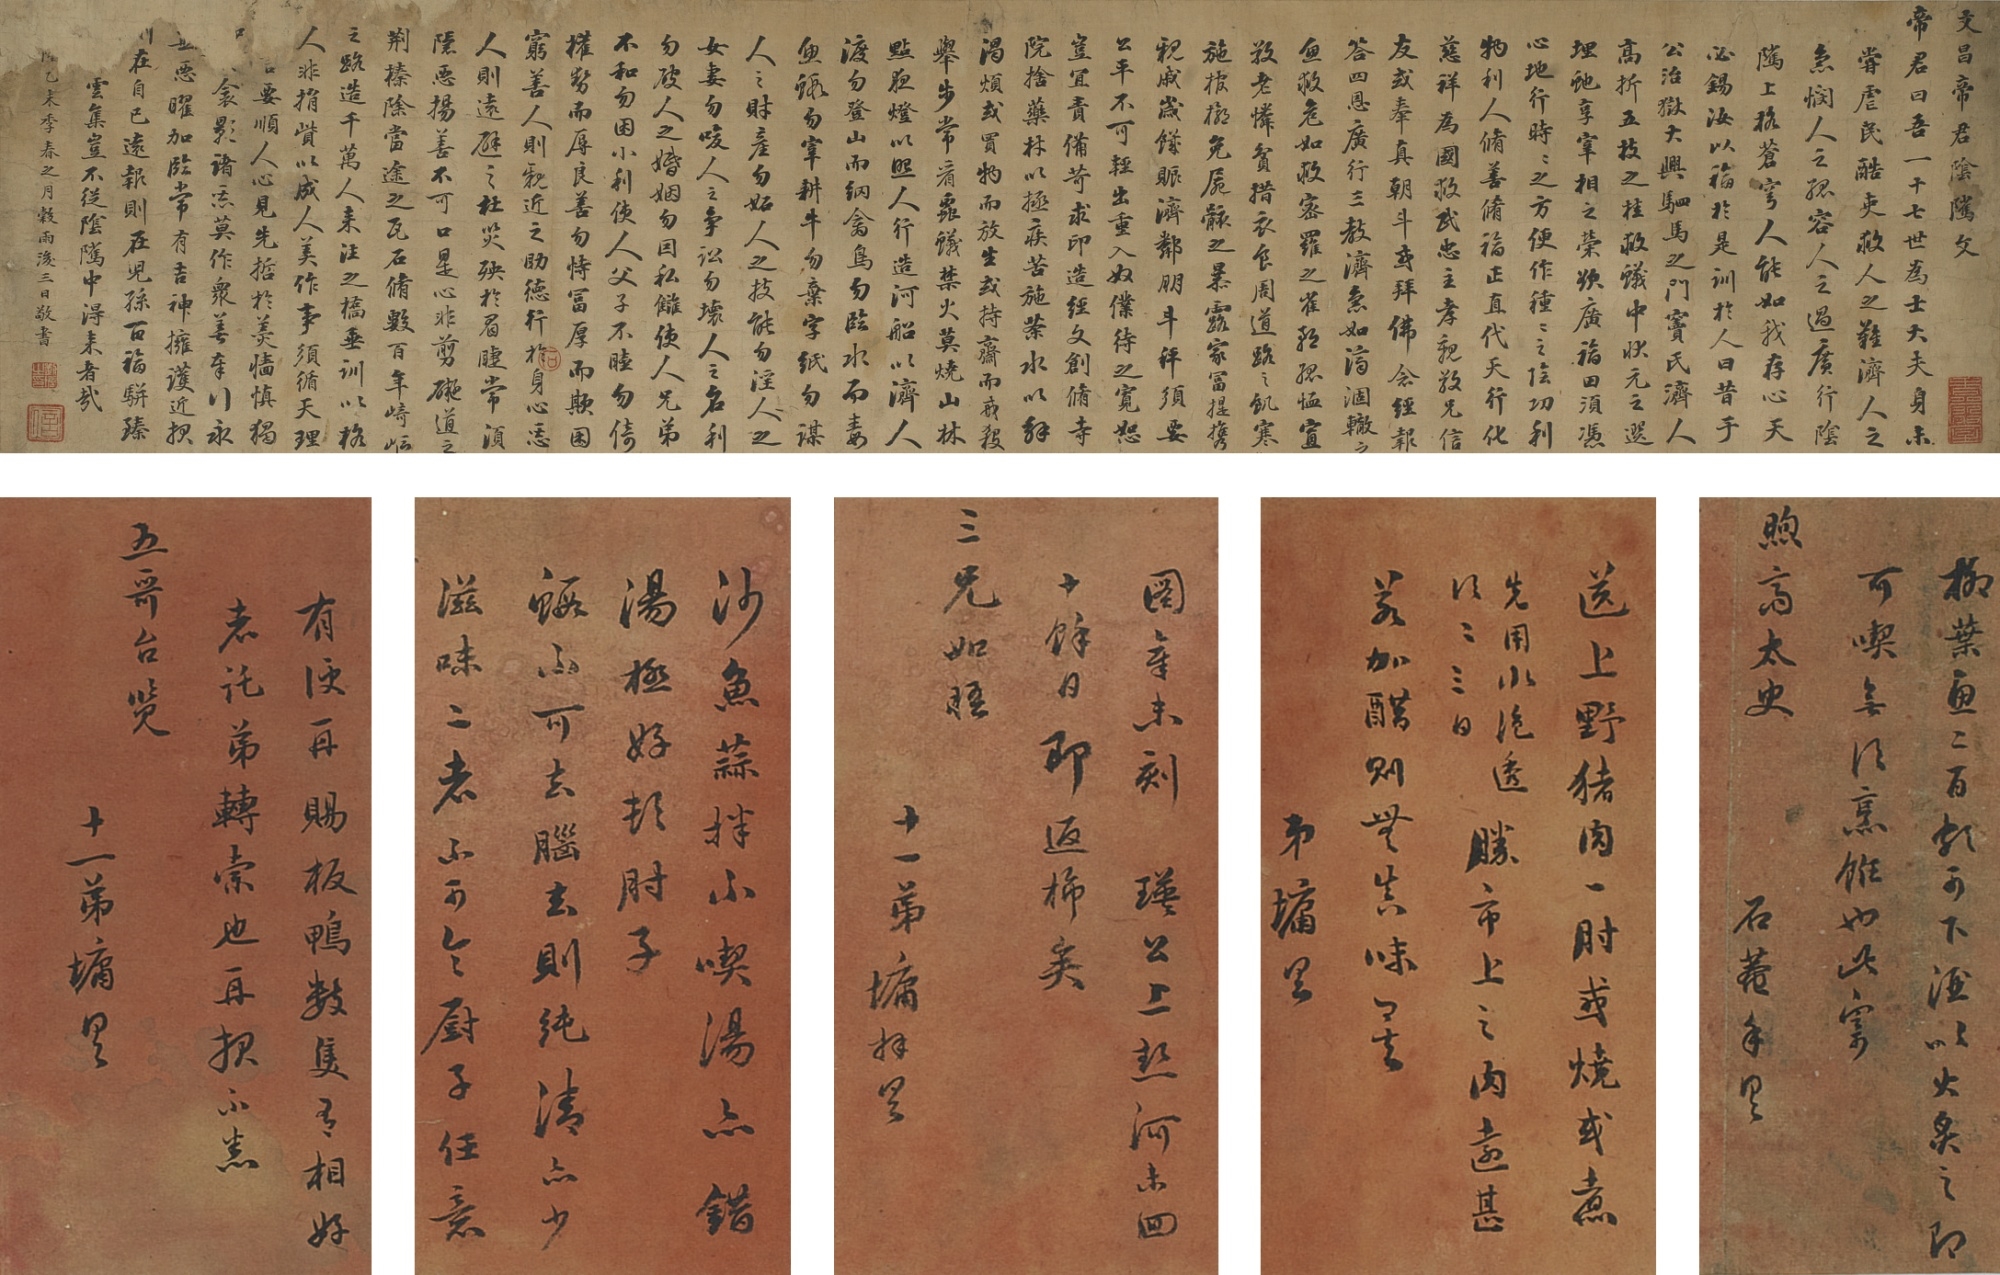 文昌帝君陰騭文
帝君曰吾一十七世為士大夫身未
嘗虐民酷吏救人之難濟人之
急憫人之孤容人之過廣行陰
騭上格蒼穹人能如我存心天
必錫汝以福於是訓於人曰昔于
公治獄大興駟馬之門竇氏濟人
高折五枝之桂救蟻中狀元之選
埋蛇享宰相之榮欲廣福田須憑
心地行時々之方便作種々之陰功利
物利人脩善脩福正直代天行化
慈祥為國救民忠主孝親敬兄信
友或奉真朝斗或拜佛念經報
答四恩廣行三教濟急如濟涸轍之
魚救危如救密羅之雀矜孤恤寡
敬老憐貧措衣食周道路之飢寒
施棺槨免屍骸之暴露家富提攜
親戚歲饑賑濟鄰朋斗秤須要
公平不可輕出重入奴僕待之寬恕
豈宜責備苛求印造經文創脩寺
院捨藥材以拯疾苦施茶水以解
渴煩或買物而放生或持齋而戒殺
舉步常看蟲蟻禁火莫燒山林
點夜燈以照人行造河船以濟人
渡勿登山而網禽鳥勿臨水而毒
魚蝦勿宰耕牛勿棄字紙勿謀
人之財產勿妬人之技能勿淫人之
女妻勿唆人之爭訟勿壞人之名利
勿破人之婚姻勿因私讎使人兄弟
不和勿因小利使人父子不睦勿倚
權勢而辱良善勿恃富厚而欺困
窮善人則親近之助德行於身心惡
人則遠避之杜災殃於眉睫常須
隱惡揚善不可口是心非剪礙道之
荊榛除當途之瓦石脩數百年崎嶇
之路造千萬人來往之橋垂訓以格
人非捐貲以成人美作事須循天理
言要順人心見先哲於羹牆慎獨
衾影諸惡莫作眾善奉行永
惡曜加臨常有吉神擁護近報
在自己遠報則在兒孫百福駢臻
雲集豈不從陰騭中得來者哉
乙未季春之月穀雨後三日敬書
柳葉魚二百頭可下酒以火炙之即
可喫無須烹飪也此字
煦高太史
石菴手具
送上野豬肉一肘或燒或煮
先用水泡透
須二三日
勝市上之肉遠甚
若加醋則無其味矣
弟墉具
圖章未刻 瑛公上熱河未回
十餘日即返棹矣
三兄如晤
十一弟墉拜具
沙魚蒜拌不喫湯亦錯
湯極好燉肘子
蝦不可去腦去則純清亦少
滋味二者不可令廚子任意
有便再賜板鴨數隻有相好
者託弟轉索也再報不盡
五哥台覽
十一弟墉具